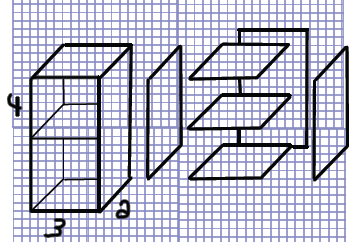 4
3
2